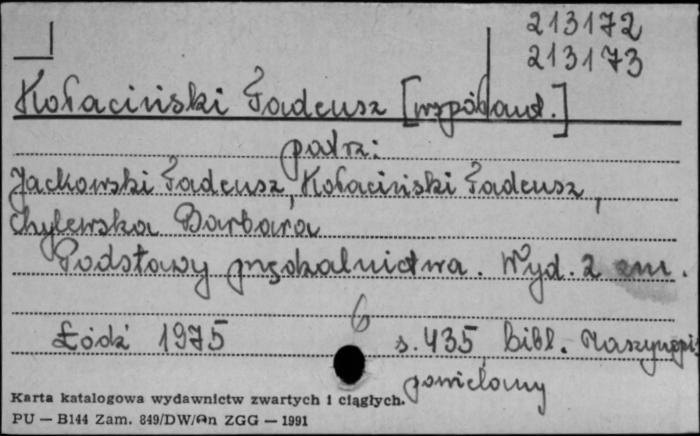 213172
213173
Kołaciński Tadeusz [współaut.]
patrz:
Jackowski Tadeusz, Kołaciński Tadeusz,
Chylewska Barbara
Podstawy przękalnictwa. Wyd. 2 zm.
6
Łódź 1975 s. 435, bibl. Maszynopis
powielany
Karta katalogowa wydawnictw zwartych i ciągłych.
PU — B144 Zam. 849/DW/An ZGG — 1991